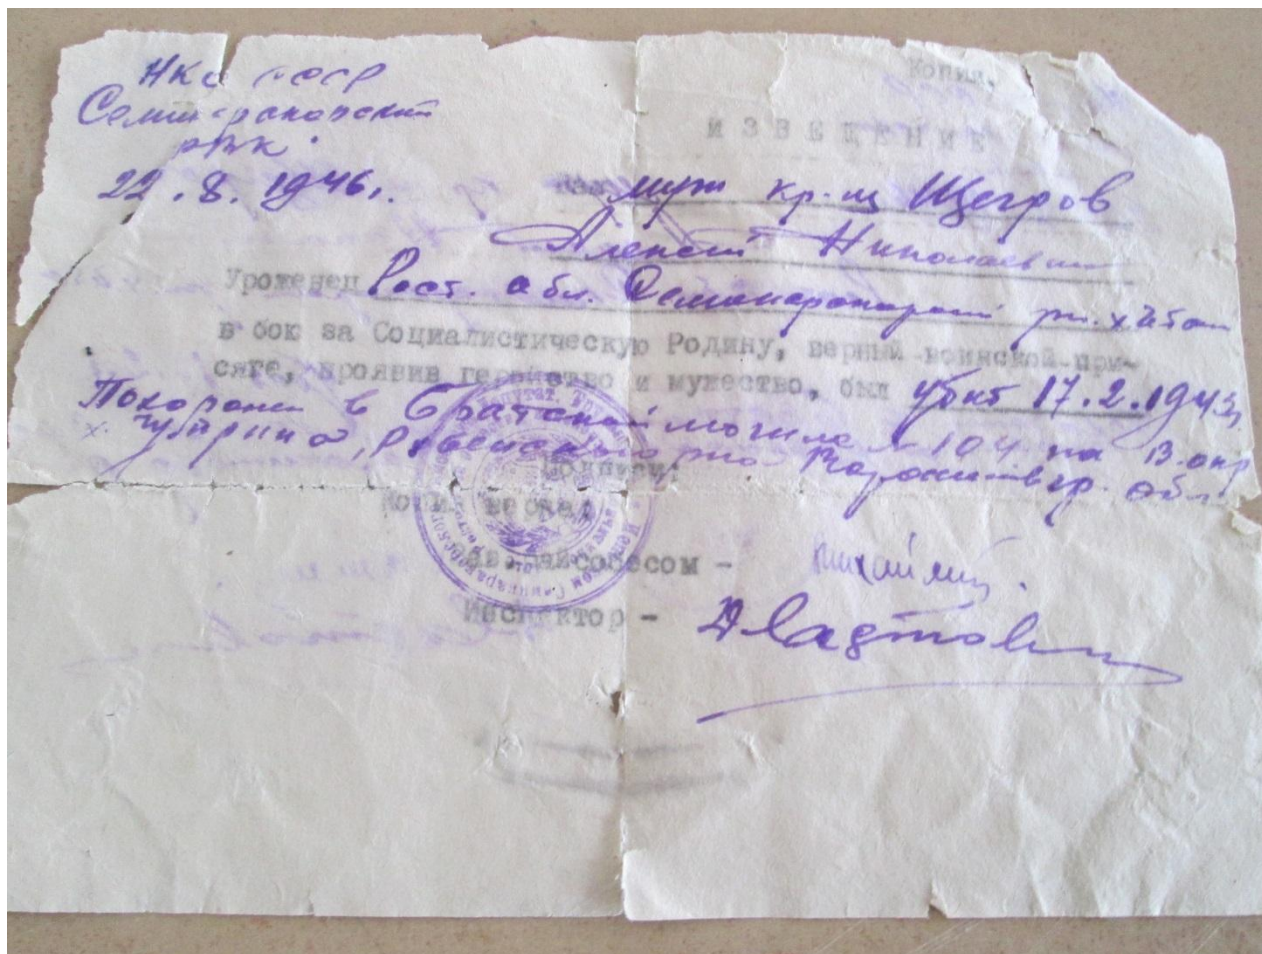 НКО СССР
Семикаракорский
РВК.
22.8.1946г.
Копия.
ИЗВЕЩЕНИЕ
Ваш муж кр-ц Щегров
Алексей Николаевич
Уроженец Рост. обл. Семикаракорский рн. х.
в бою за Социалистическую Родину, верный воинской при-
сяге, проявив геройство и мужество, был убит 17.2.1943г
Похоронен в Братской могиле № 104 на В. окр
х. Ровеньского р-на Ворошиловгр. обл.
Подписи:
Копия верна:
Зав.райсобесом - Михайлиц.
Инспектор -